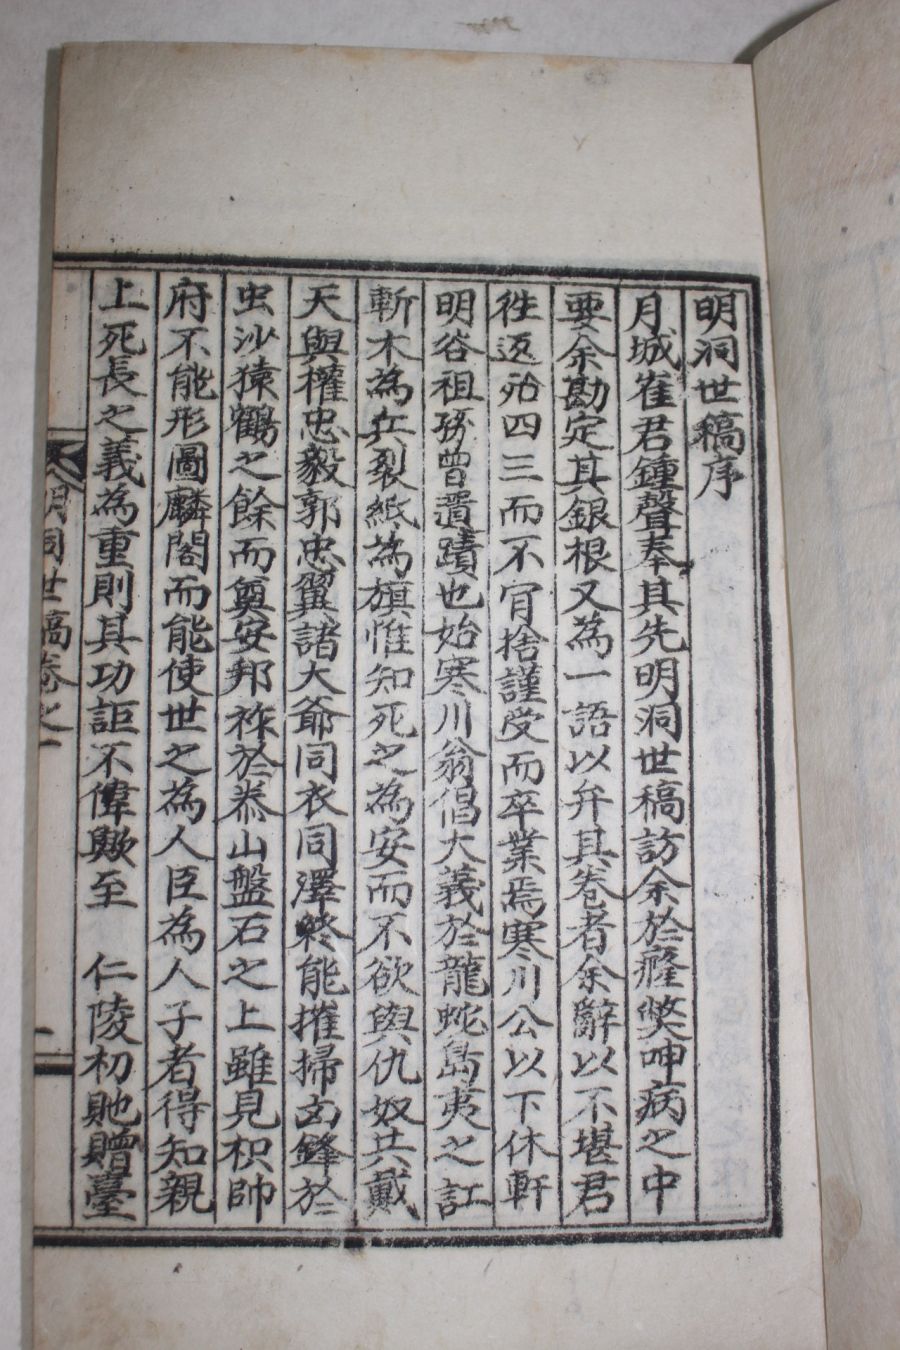 明洞世稿序
月城崔君鍾聲奉其先明洞世稿訪余於癃獘呻病之中
要余勘定其銀根又為一語以弁其卷者余辭以不堪君
徃返殆四三而不肯捨謹受而卒業焉寒川公以下休軒
明谷祖孫曾遺蹟也始寒川翁倡大義於龍蛇島夷之訌
斬木為兵裂紙為旗惟知死之為安而不欲與仇奴共戴
天與權忠毅郭忠翼諸大爺同衣同澤終能摧掃凶鋒於
虫沙猿鶴之餘而奠安邦祚於泰山盤石之上雖見枳帥
府不能形圖麟閣而能使世之為人臣為人子者得知親
上死長之義為重則其功詎不偉歟至　仁陵初貤贈臺
明洞世稿卷之一
一